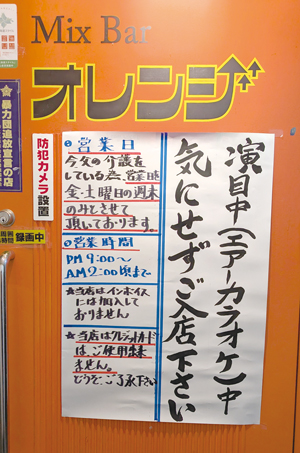 Mix Bar
オレンジ
暴力団追放宣言の店
防犯カメラ設置
録画中
演目中(エアーカラオケ)中
気にせずご入店下さい
◎営業日
今父の介護を
している為、営業日
金・土曜日の週末
のみとさせて
頂いております。
◎営業時間
PM 9:00〜
AM 2:00頃まで
☆当店はインボイス
には加入して
おりません
☆当店はクレジットカード
はご使用出来
ません。
どうぞご了承下さい